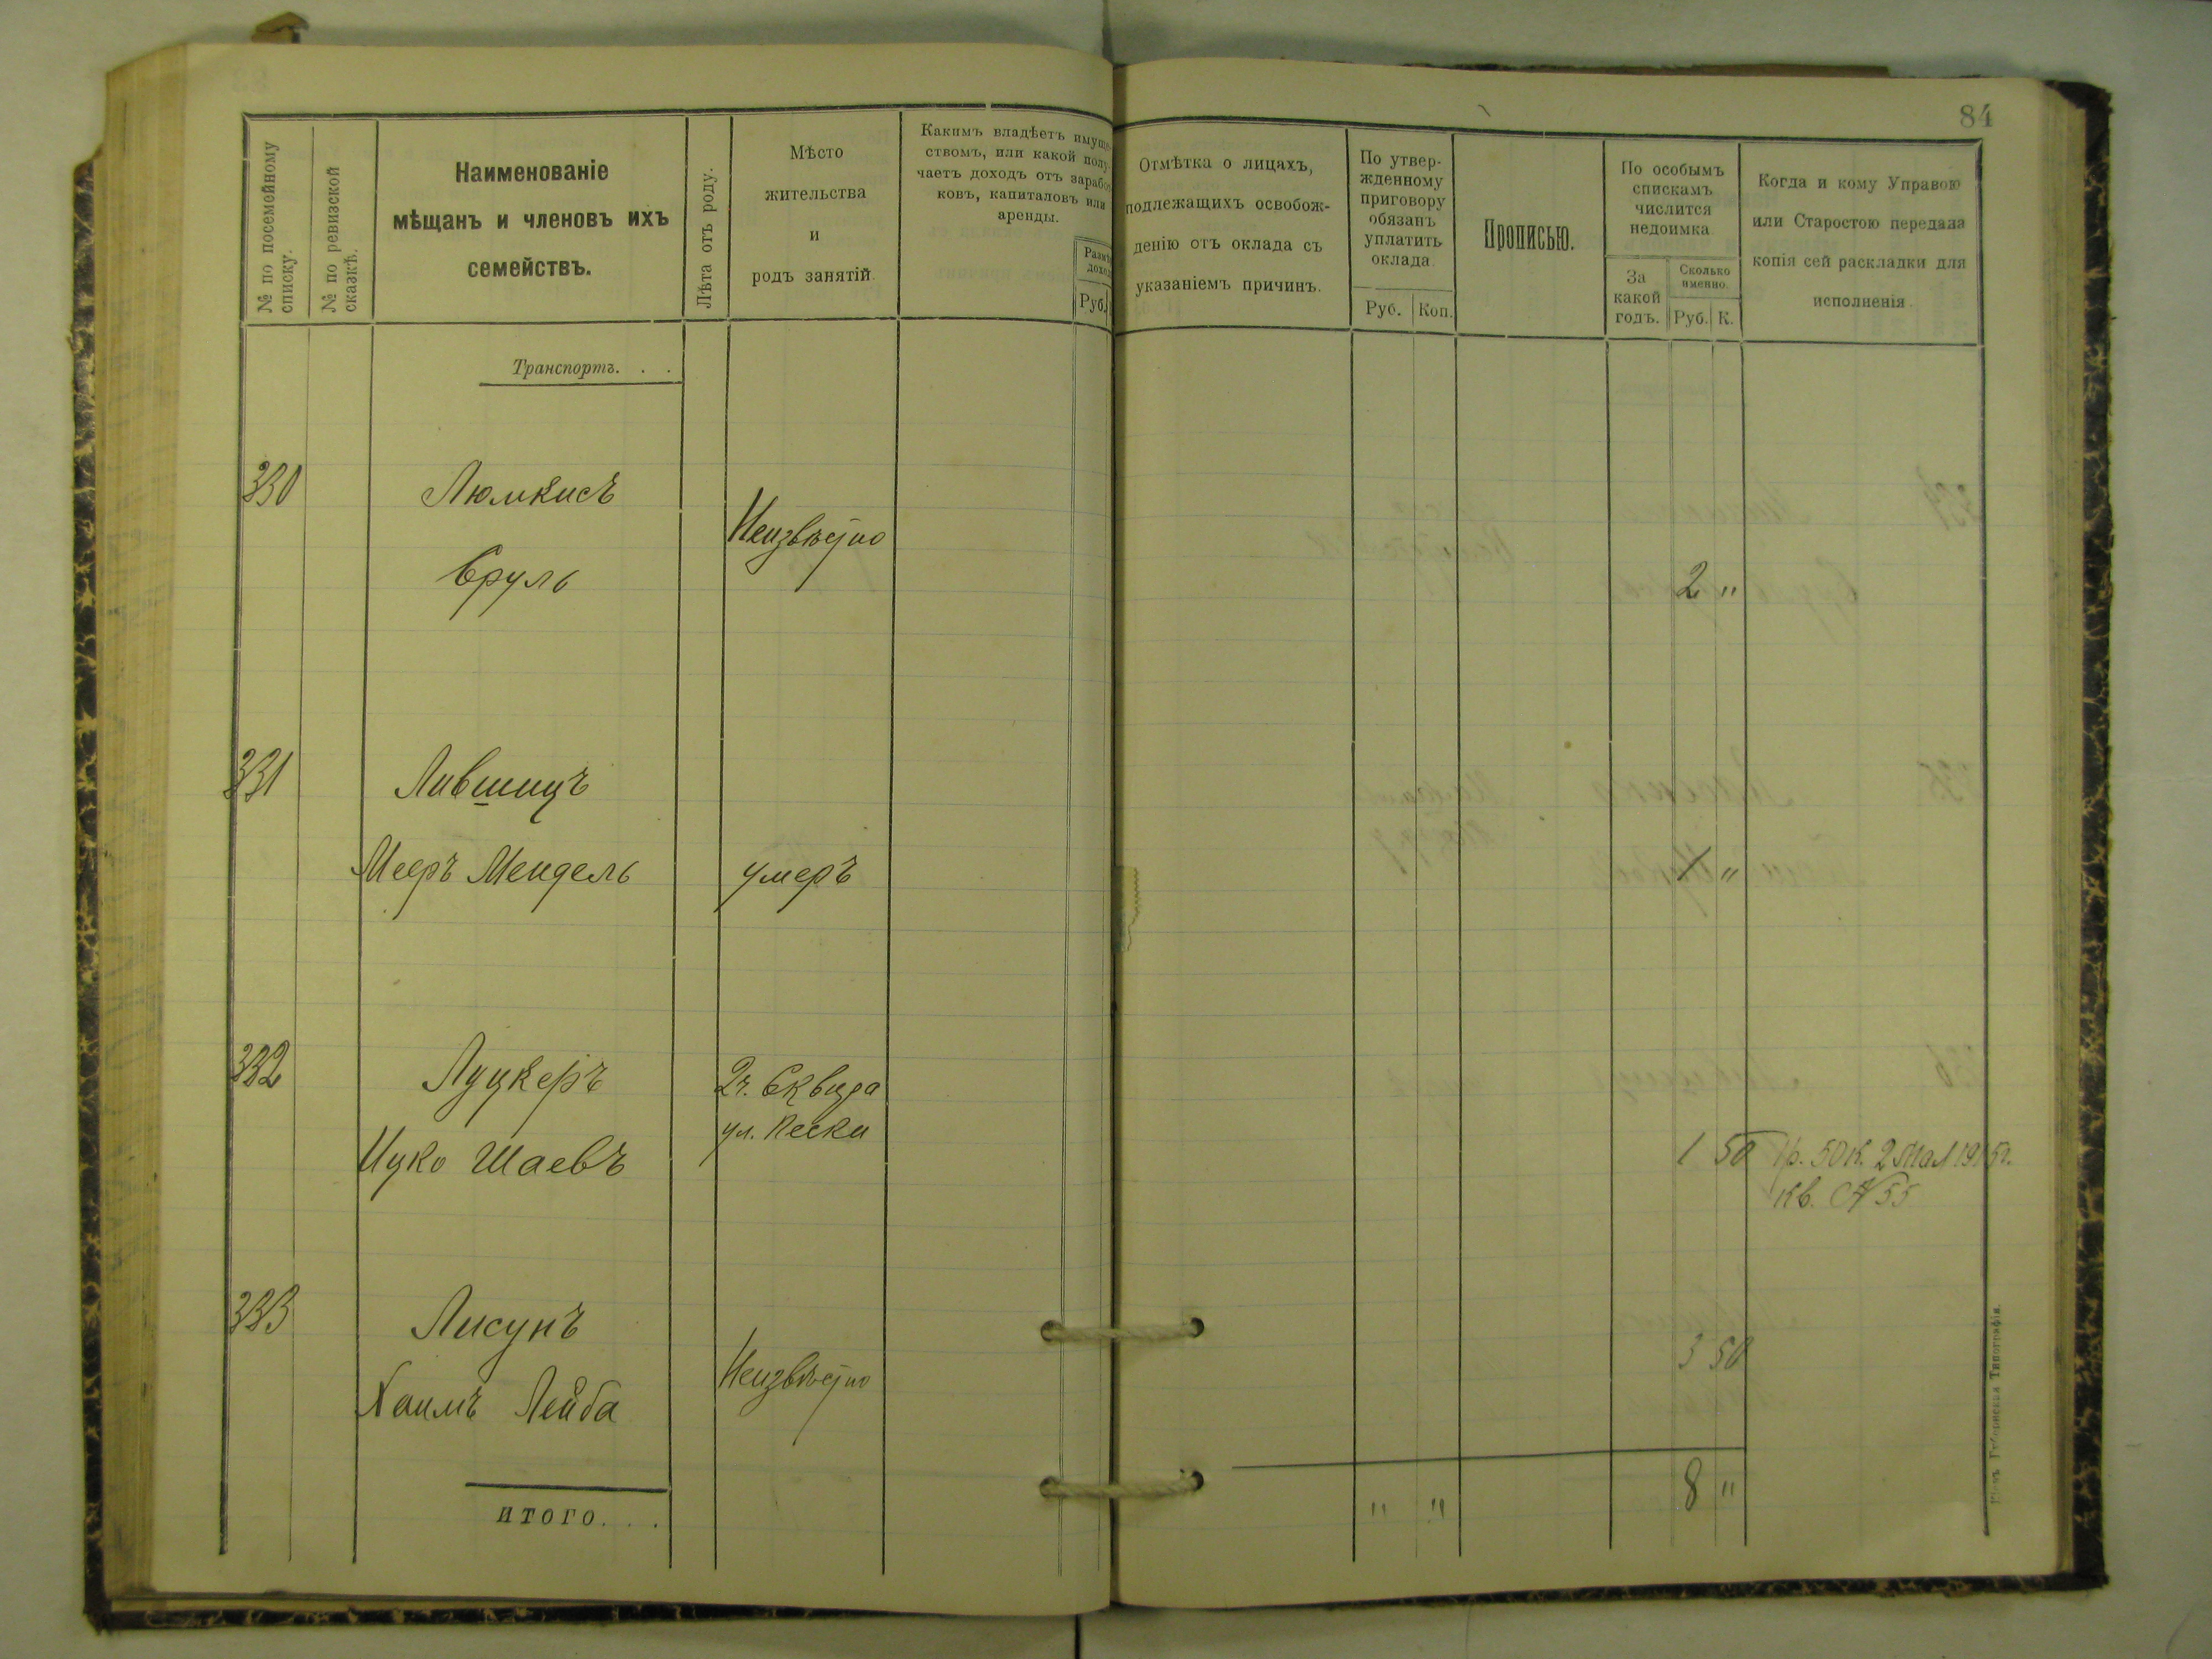 84
№ по посемейному
списку.
№ по ревизской
сказкѣ.
Наименованіе
мѣщанъ и членовъ ихъ
семействъ.
Лѣта отъ роду.
Мѣсто
жительства
и
родъ занятій.
Какимъ владѣетъ имуще-
ствомъ, или какой полу-
чаетъ доходъ отъ заработ-
ковъ, капиталовъ или
аренды.
Руб.
Отмѣтка о лицахъ,
подлежащихъ освобож-
денію отъ оклада съ
указаніемъ причинъ.
По утвер-
жденному
приговору
обязанъ
уплатить
оклада
Руб. Коп.
Прописью.
По особымъ
спискамъ
числится
недоимка
За
какой
годъ.
Сколько
именно.
Руб. К.
Когда и кому Управою
или Старостою передана
копія сей раскладки для
исполненія.
Транспортъ. . .
330 Люмкисъ
Неизвѣстно
Сруль 2 "
331 Лившицъ
Мееръ Мендель умеръ 1 "
332 Луцкеръ 2ч. Сквира
ул. Пески
Ицко Шаевъ 1 50 1р. 50 к. 2 Мая 1915г.
Кв. № 55
333 Лисунъ
3 50
Хаимъ Лейба Неизвѣстно
ИТОГО. . . " " 8 "
Кіевъ, Губернская Типографія.